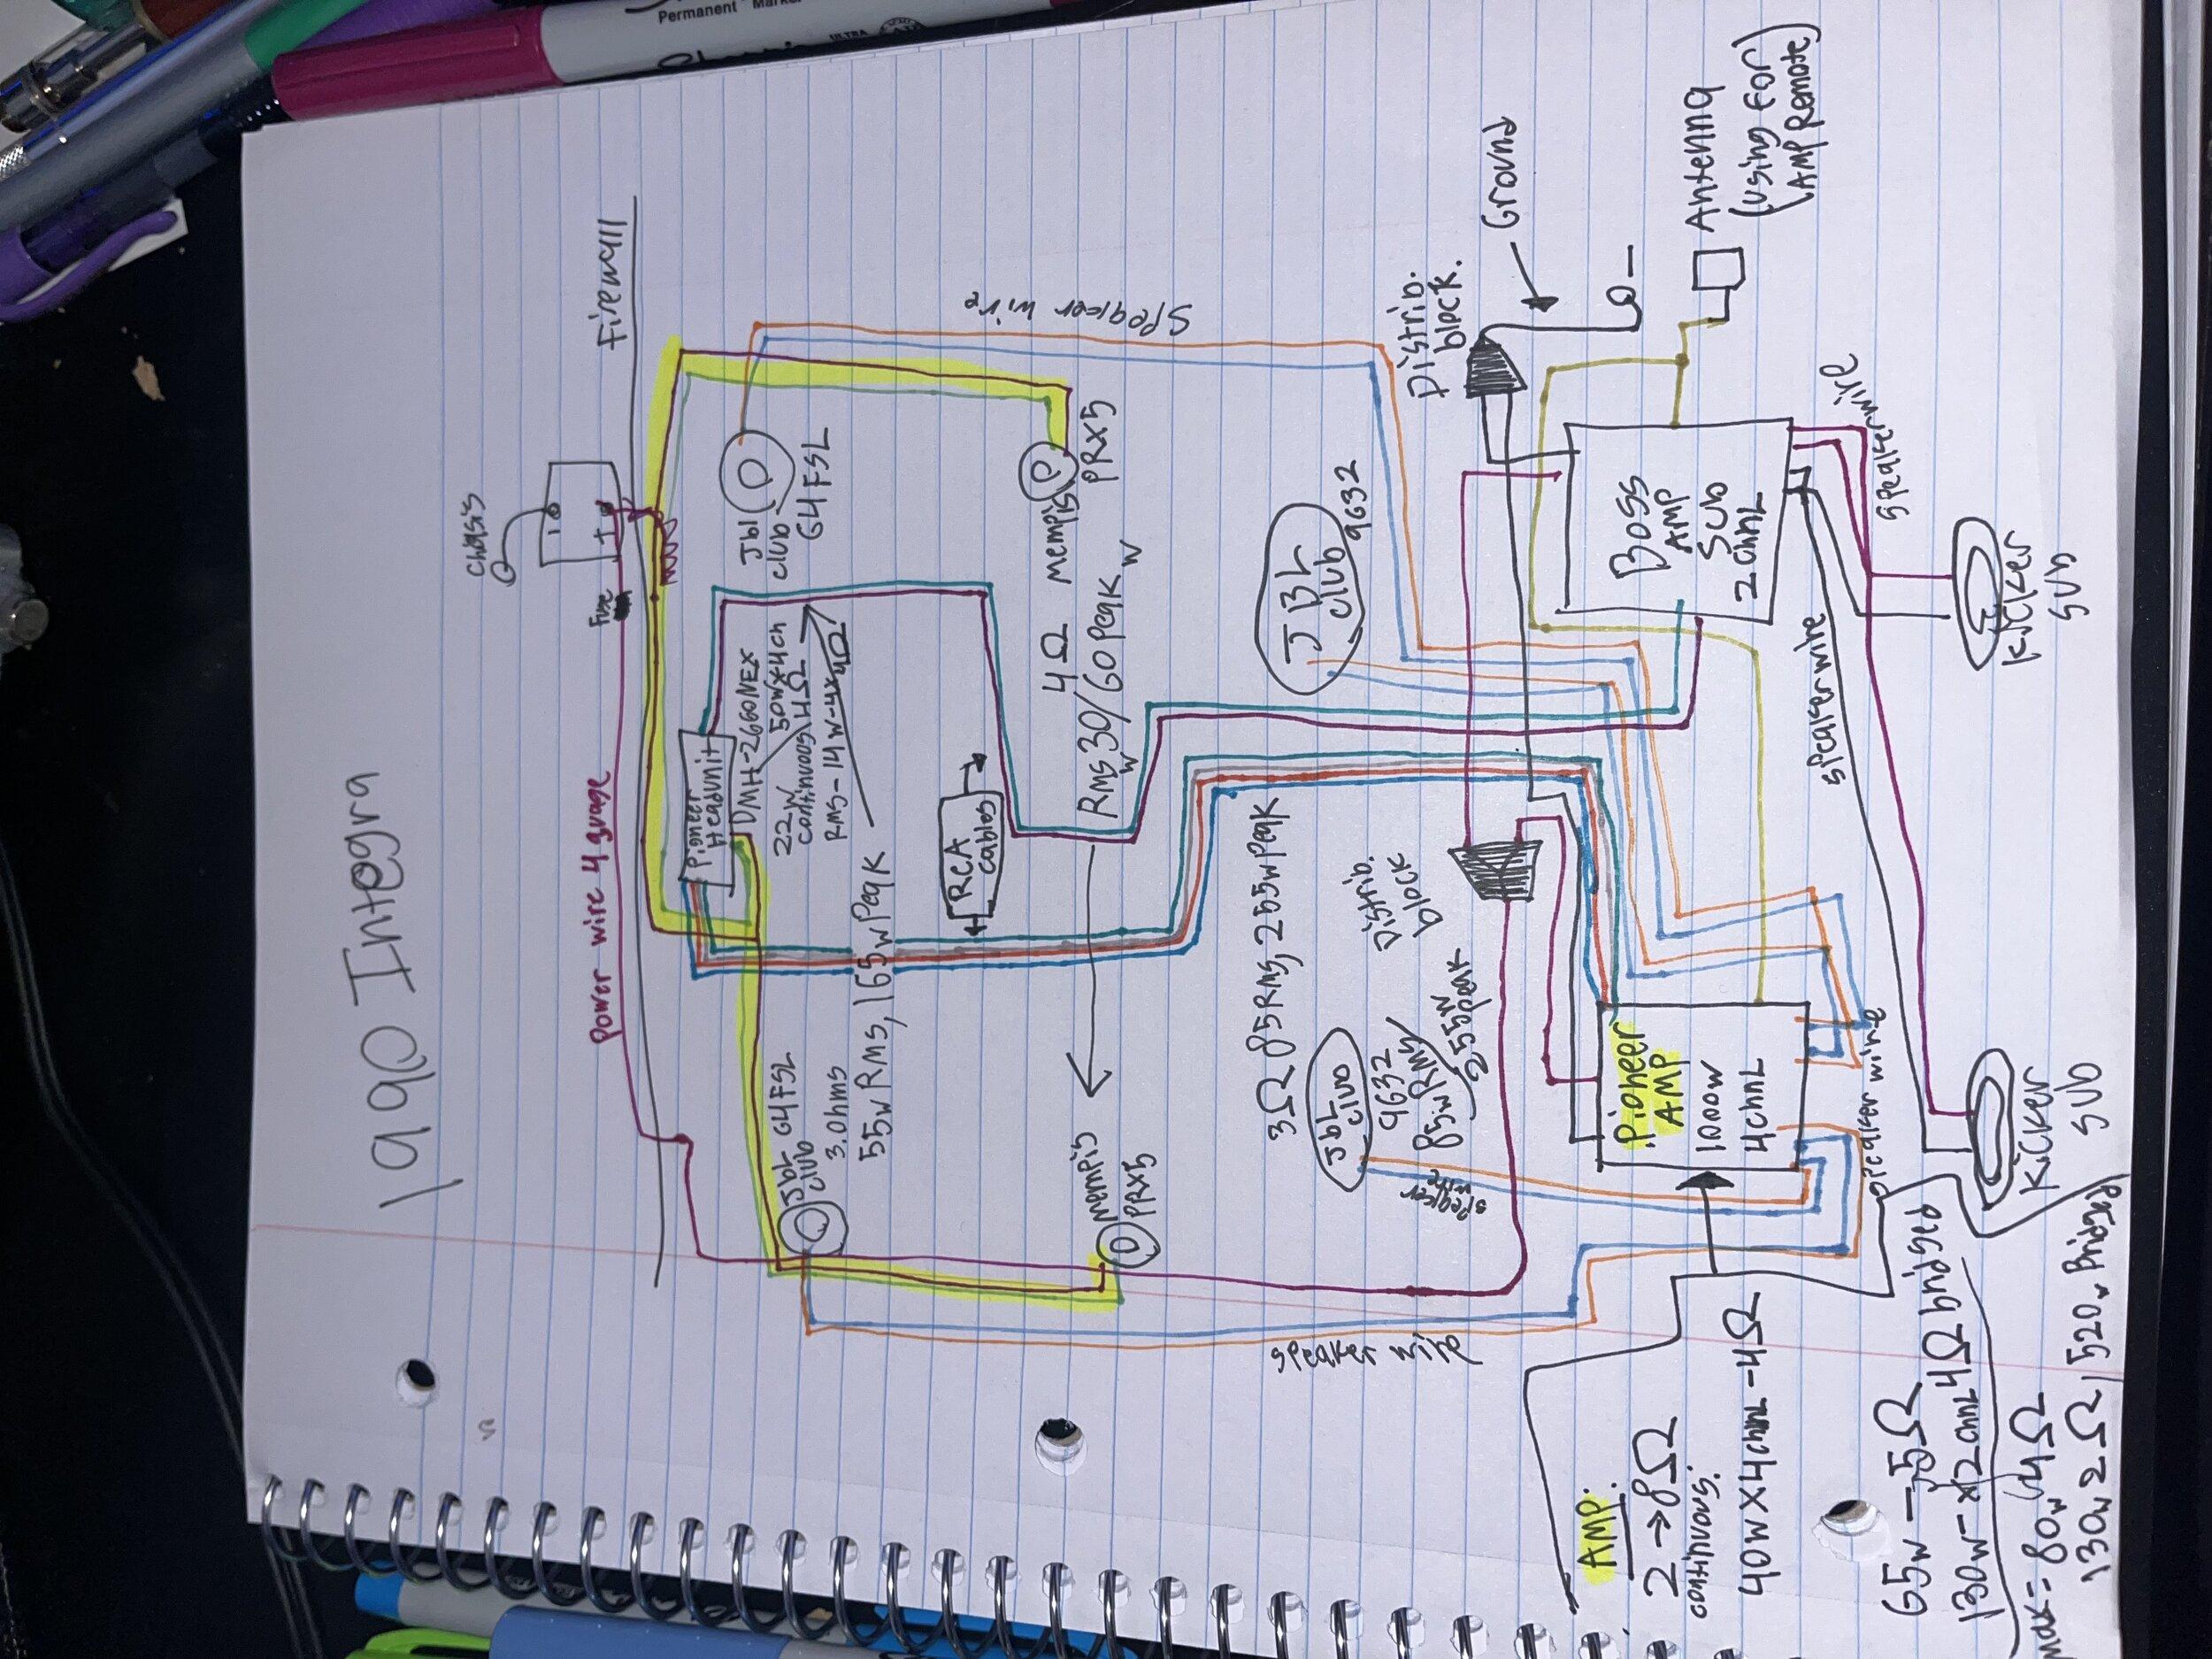 Permanent Marker
ULTRA
1990 Integra
chasis
Firewall
Fuse
- +
Power wire 4 guage
Pioneer
Headunit
DMH-2660NEX
50w×4ch
22w
continuous/4Ω
RMS-14w-4x4Ω
Jbl
club
64FSL
Speaker wire
JbL
club
64FSL
3.0hms
55w Rms, 165w Peak
mempis
PRX5
4Ω
Rms 30/60 Peak
w w
RCA
cables
mempis
PRX5
JBL
club
9632
3Ω 85Rms, 255w Peak
JbL
club
9632
85w Rms/
255w
peak
speaker
wire
speaker wire
Distrib.
block
Distrib.
block.
Ground
-
Antenna
(using for)
(AMP Remote)
Boss
AMP
Sub
2chnL
Pioneer
AMP
1000w
4chnL
speaker wire
speaker wire
speaker wire
Kicker
sub
Kicker
sub
AMP:
2→8Ω
continuous:
40w×4chnl-4Ω
65w-
130w-x2chnl 4Ω bridged
max=80w 4Ω
130w 2Ω, 520w Bridged